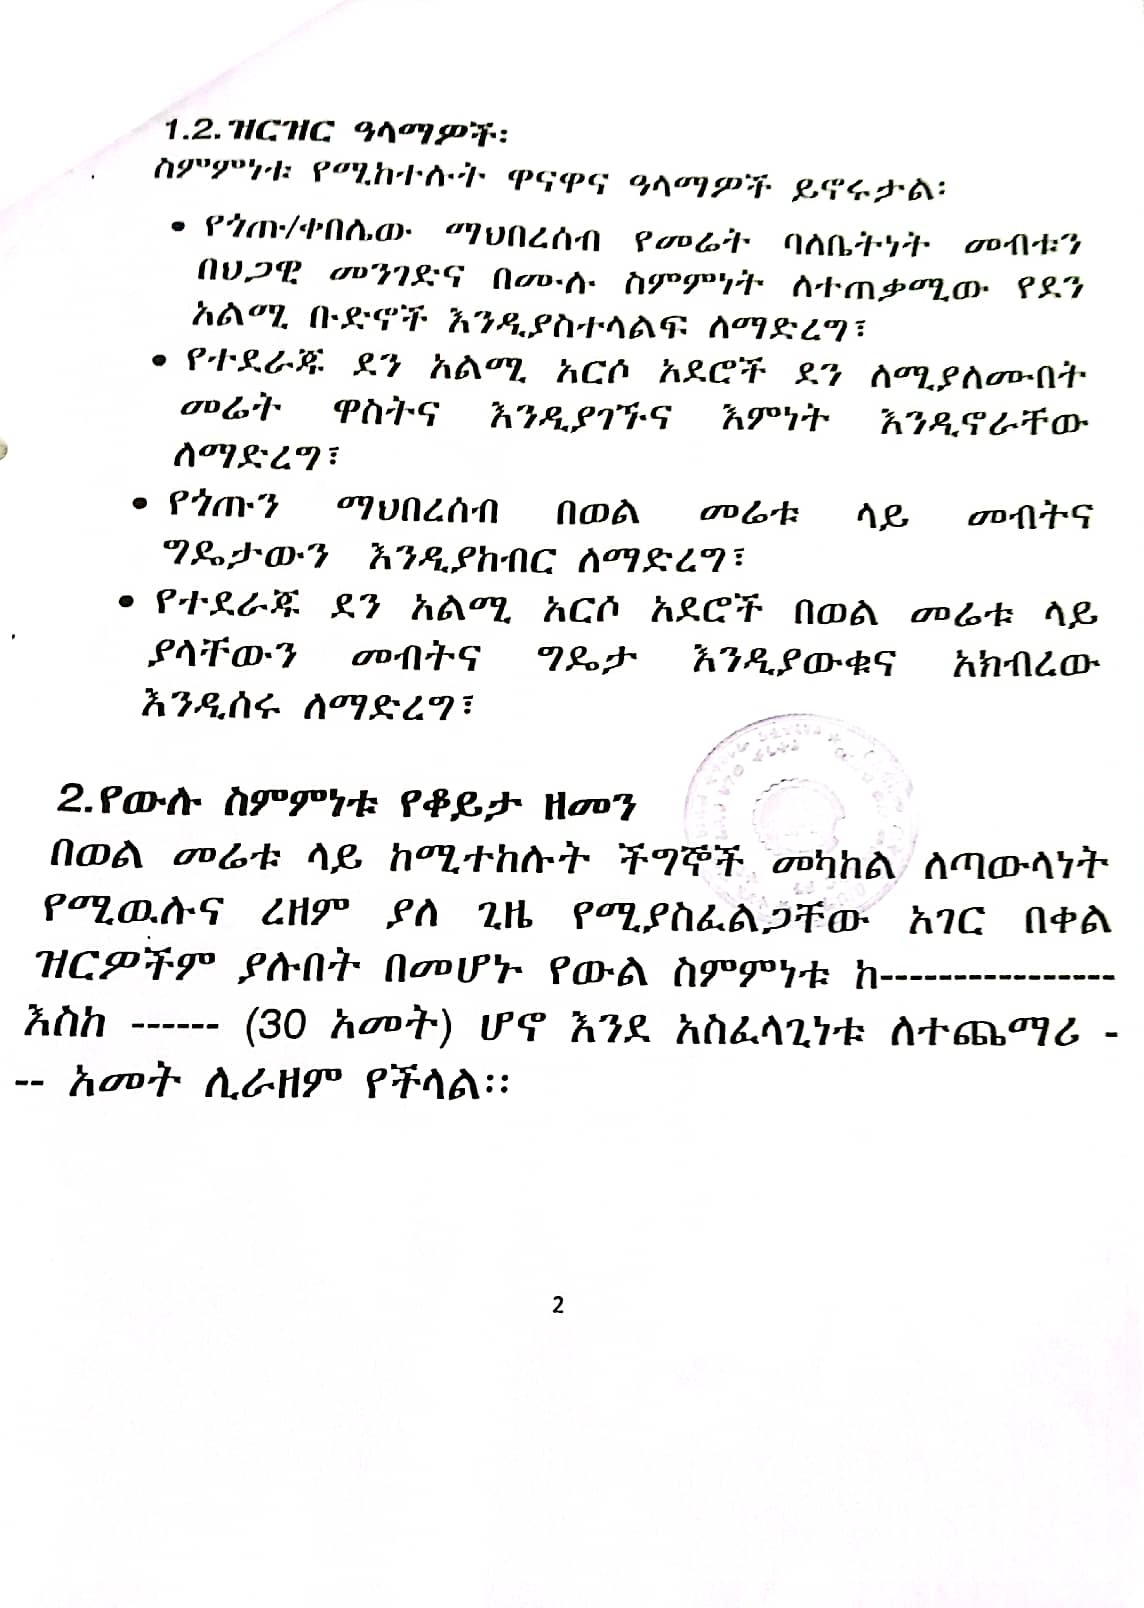 1.2.ዝርዝር ዓላማዎች፡
ስምምነቱ የሚከተሉት ዋናዋና ዓላማዎች ይኖሩታል፡
• የጎጡ/ቀበሌው ማህበረሰብ የመሬት ባለቤትነት መብቱን
በህጋዊ መንገድና በሙሉ ስምምነት ለተጠቃሚው የደን
አልሚ ቡድኖች እንዲያስተላልፍ ለማድረግ፣
• የተደራጁ ደን አልሚ አርሶ አደሮች ደን ለሚያለሙበት
መሬት ዋስትና እንዲያገኙና እምነት እንዲኖራቸው
ለማድረግ፣
• የጎጡን ማህበረሰብ በወል መሬቱ ላይ መብትና
ግዴታውን እንዲያከብር ለማድረግ፣
• የተደራጁ ደን አልሚ አርሶ አደሮች በወል መሬቱ ላይ
ያላቸውን መብትና ግዴታ እንዲያውቁና አክብረው
እንዲሰሩ ለማድረግ፣
2.የውሉ ስምምነቱ የቆይታ ዘመን
በወል መሬቱ ላይ ከሚተከሉት ችግኞች መካከል ለጣውላነት
የሚዉሉና ረዘም ያለ ጊዜ የሚያስፈልጋቸው አገር በቀል
ዝርዎችም ያሉበት በመሆኑ የውል ስምምነቱ ከ---------------
እስከ ------ (30 አመት) ሆኖ እንደ አስፈላጊነቱ ለተጨማሪ -
-- አመት ሊራዘም የችላል፡፡
2